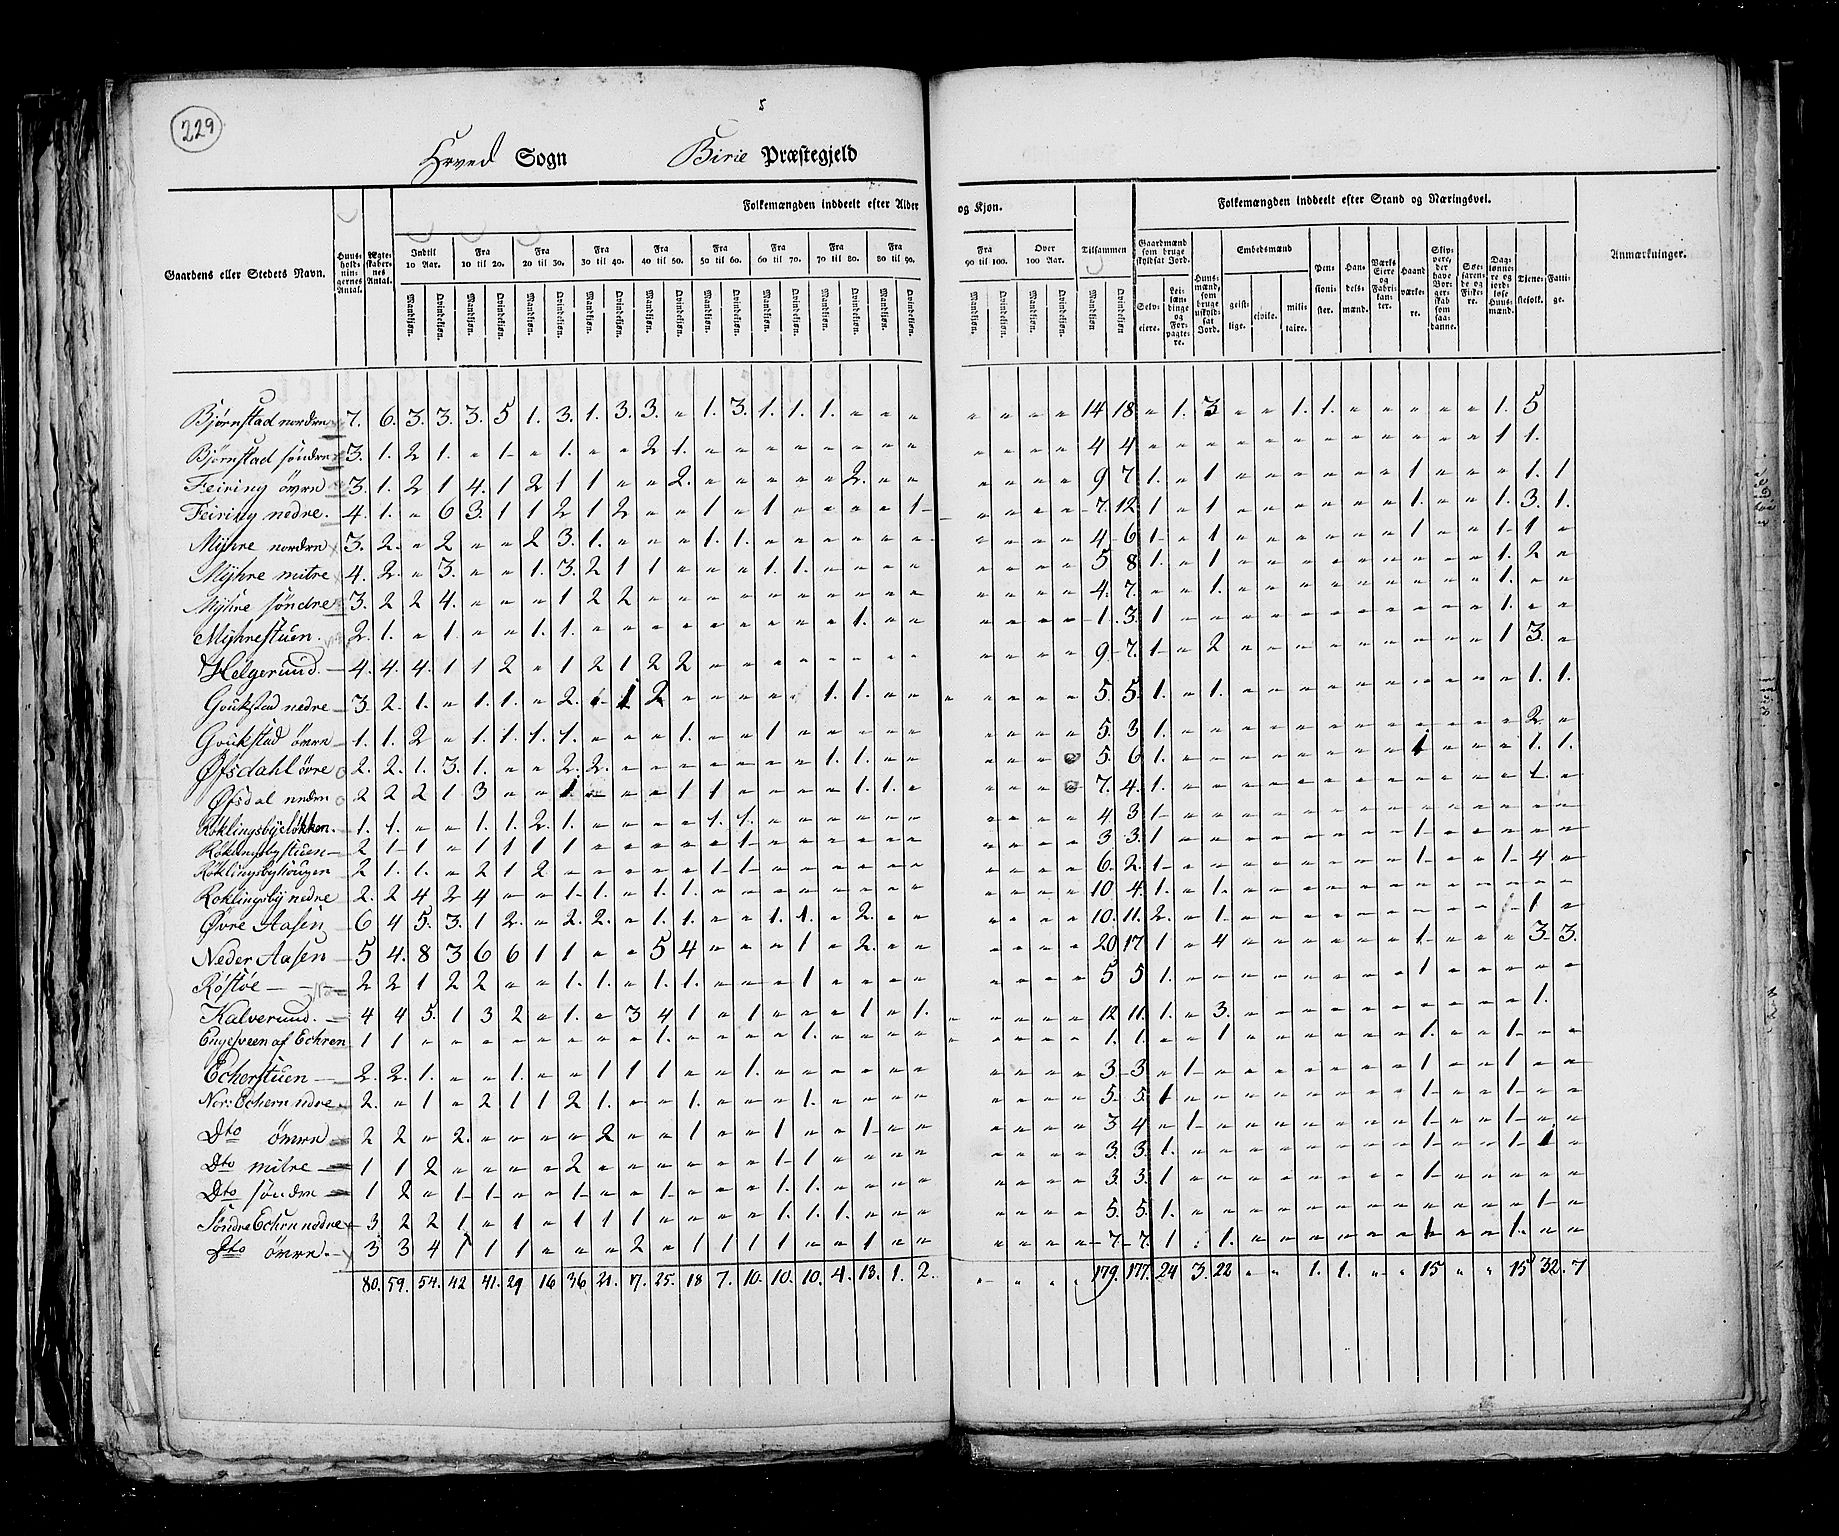 229
5
Hrved Sogn Birie Præstegjeld
Folkemængden inddeelt efter Alder og Kjøn.
Folkemængden inddeelt efter Stand og Næringsvei.
Gaardens eller Stedets Navn.
Huus-holdnin-gernes Antal.
Ægte-skaber-nes Antal.
Indtil 10 Aar.
Fra 10 til 20.
Fra 20 til 30.
Fra 30 til 40.
Fra 40 til 50.
Fra 50 til 60.
Fra 60 til 70.
Fra 70 til 80.
Fra 80 til 90.
Fra 90 til 100.
Over 100 Aar.
Tilsammen
Mandkjøn. Qvindekjøn.
Gaardmænd som bruge skyldsat Jord.
Selv-eiere.
Lei-lændinge og For-pagte-re.
Huus-mænd, som bruge uskyld-sat Jord.
Embedsmænd
geist-lige. civile. mili-taire.
Pen-sioni-ster.
Han-dels-mænd.
Værks Eiere og Fabri-kan-ter.
Haand værke-re.
Skip-pere, der have Bor-ger-skab som saa-danne.
Søe-faren-de og Fiske-re.
Dag-lønne-re og jord-løse Huus-mænd.
Tjene-stefolk.
Fatti-ge.
Anmærkninger.
Bjørnstad nordre 7. 6. 3. 3. 3. 5 1. 3. 1. 3. 3. " 1. 3. 1. 1. 1. " " " " " " " 14 18 " 1. 3 " " 1. 1. " " " " " 1. 5
Bjørnstad søndre 3. 1. 2 1. " 1 " 1. " " 2 1. 4 4 1 1.
Feiring øvre 3. 1. 2 1 4. 1 2 1 1 " " 2. " " " " " 2. " " 9 7 1. " 1 1 1. 1
Feiring nedre. 4. 1. " 6 3. 1 1 2 1 2 " " 1 " 1 " " " " 1 7. 12. 1 " 1 1. 1. 3. 1.
Myhre nordre 3. 2. " 2 " " 2 3. 1. " " " 1. 1. 4 6 1 " 1 1 1 1
Myhre mitre 4. 2. " 3. " " 1. 3. 2 1 1 " " " 1. 1. 5 8 1. " 1 1. 2
Myhre søndre 3. 2 2 4. " " " 1 2 2 4. 7. " " 1. 1.
Myhrestuen. 2. 1. " 1. " " 1. 1. 1. 1. 3. 1 1.
Helgerud. 4. 4. 4. 1 1 2 " 1 2 1 2 2 9 7. 1 " 2 1 3.
Goukstad nedre 3. 2. 1. " 1. 1. " 2. 1. 1 2 1. 1. 5. 5. 1. " 1. 1. 1.
Goukstad øvre 1. 1. 2 " 1. 1. 1. 1. " " " 1. " " 1 5. 3 1. 2
Øfsdahl øvre 2. 2. 1. 3. 1. " " 2. 2. 1. 1. 5. 6 1. 1 1. 1.
Øfsdal nedre 2 2 2 1 3 " " 1 " " " 1 1 1. 1. 7. 4. 1. 1.
Roklingsbyeløkken. 1. 1. " " 1. 1. 2. 1. 1. 1. 4. 3 1
Roklingsbystuen 2 1 1 " 1 1 1 1 1 3 3. 1 1
Roklingsbyhougen 2 1. 1. " 2 1 2 1 1 6. 2. 1 1 1 4
Roklingsby nedre 2. 2 4 2 4 " " 1. 1. " 1. 1. 10 4 1. " 1.
Øvre Aasen 6 4 5. 3. 1 2. " 2. 2. " 1. 1. " " 1. 1. " 2. " " 10. 11. 2. " 1. 1
Neder Aasen 5 4. 8 3 6 6 1 1 " " 5 4 " " " 1 " 2. " " 20 17 1 " 4 1. 3. 3.
Røstøe 2 2 1 2 2 " " 1. 1. " 1. 1. " " " 1 5 5 1. 1
Kalverud. 4 4 5. 1 3 2 " 1. " 3 4 1 " 1 " " " 1 " 1. 12 11. 1. " 3. 1.
Engesveen af Echren 1 1 1. 1. 1. 1. 1 1. 1
Echerstuen 2. 2. 1. " " 1. " " 1 1 1 " " 1. 3 3 " 1 1 1
Nor: Echern nedre 2. " 1 " 2 1 1 2 1. " " 1 " " " 1. 5. 5. 1 1 1
Dto øvere 2 2 " 2. " " " " 2 " " 1 " 1 " " 1 3 4 " 1 1 1
Dto mitre 1 1 2 " " " " 2 1 1 3. 3. 1. 1 1 1
Dto søndre 1 2 " 1 1 " " 1 " " 1 " " " 1. 1. 3. 3. 1 1
Søndre Echrn nedre 3 2 2 1. " 1 " 1 1 1 1. 1. 1. 5. 5. 1. 1
Dto øvere. 3 3 4 1 1 1 " " " 2 " 1 1 1 1 " " 1 " " 7 7. 1 : 1. 1 1.
80. 59. 54. 42 41. 29 16 36 21. 17. 25. 18 7. 10. 10. 10. 4. 13. 1. 2. 179. 177. 24 3. 22 " " 1. 1. " " 15 " " 15 32. 7